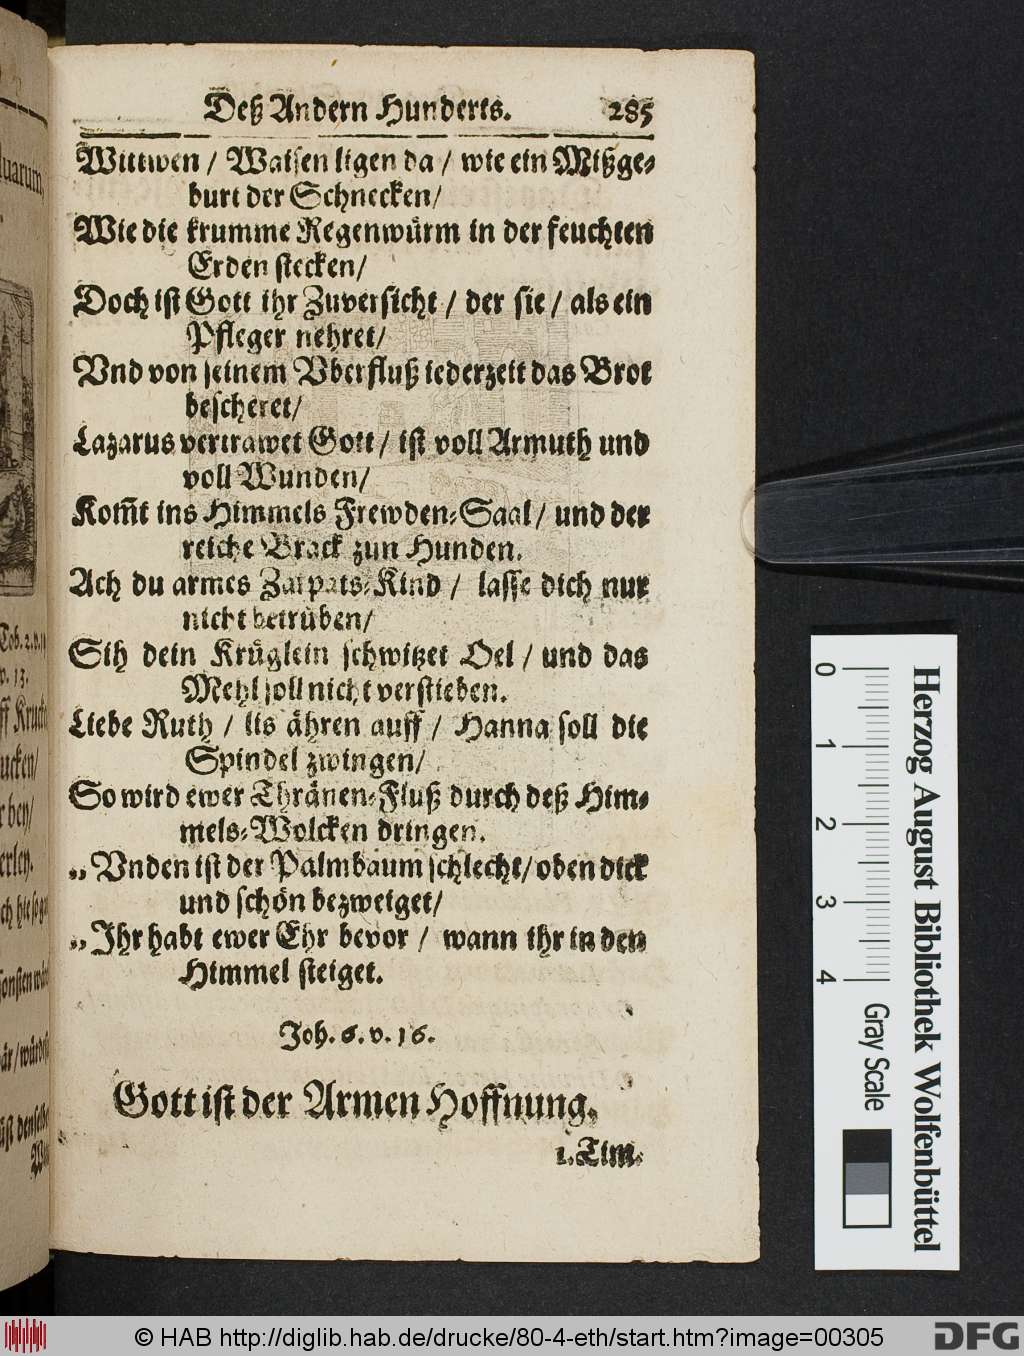 Deß Andern Hunderts. 285
Wittwen / Waisen ligen da / wie ein Mißge-
burt der Schnecken /
Wie die krumme Regenwürm in der feuchten
Erden stecken /
Doch ist Gott ihr Zuversicht / der sie / als ein
Pfleger nehret /
Vnd von seinem Vberfluß iederzeit das Brot
bescheret /
Lazarus vertrawet Gott / ist voll Armuth und
voll Wunden /
Kom̃t ins Himmels Frewden-Saal / und der
reiche Brack zun Hunden.
Ach du armes Zarpats-Kind / lasse dich nur
nicht betrüben /
Sih dein Krüglein schwitzet Oel / und das
Mehl soll nicht verstieben.
Liebe Ruth / lis ähren auff / Hanna soll die
Spindel zwingen /
So wird ewer Thränen-Fluß durch deß Him-
mels-Wolcken dringen.
„ Vnden ist der Palmbaum schlecht / oben dick
und schön bezweiget /
„ Ihr habt ewer Ehr bevor / wann ihr in den
Himmel steiget.
Joh. 6. v. 16.
Gott ist der Armen Hoffnung.
1. Tim.
luarum,
Tob. 2. v. 11
v. 13.
0 1 2 3 4
Herzog August Bibliothek Wolfenbüttel
Gray Scale
© HAB http://diglib.hab.de/drucke/80-4-eth/start.htm?image=00305
DFG